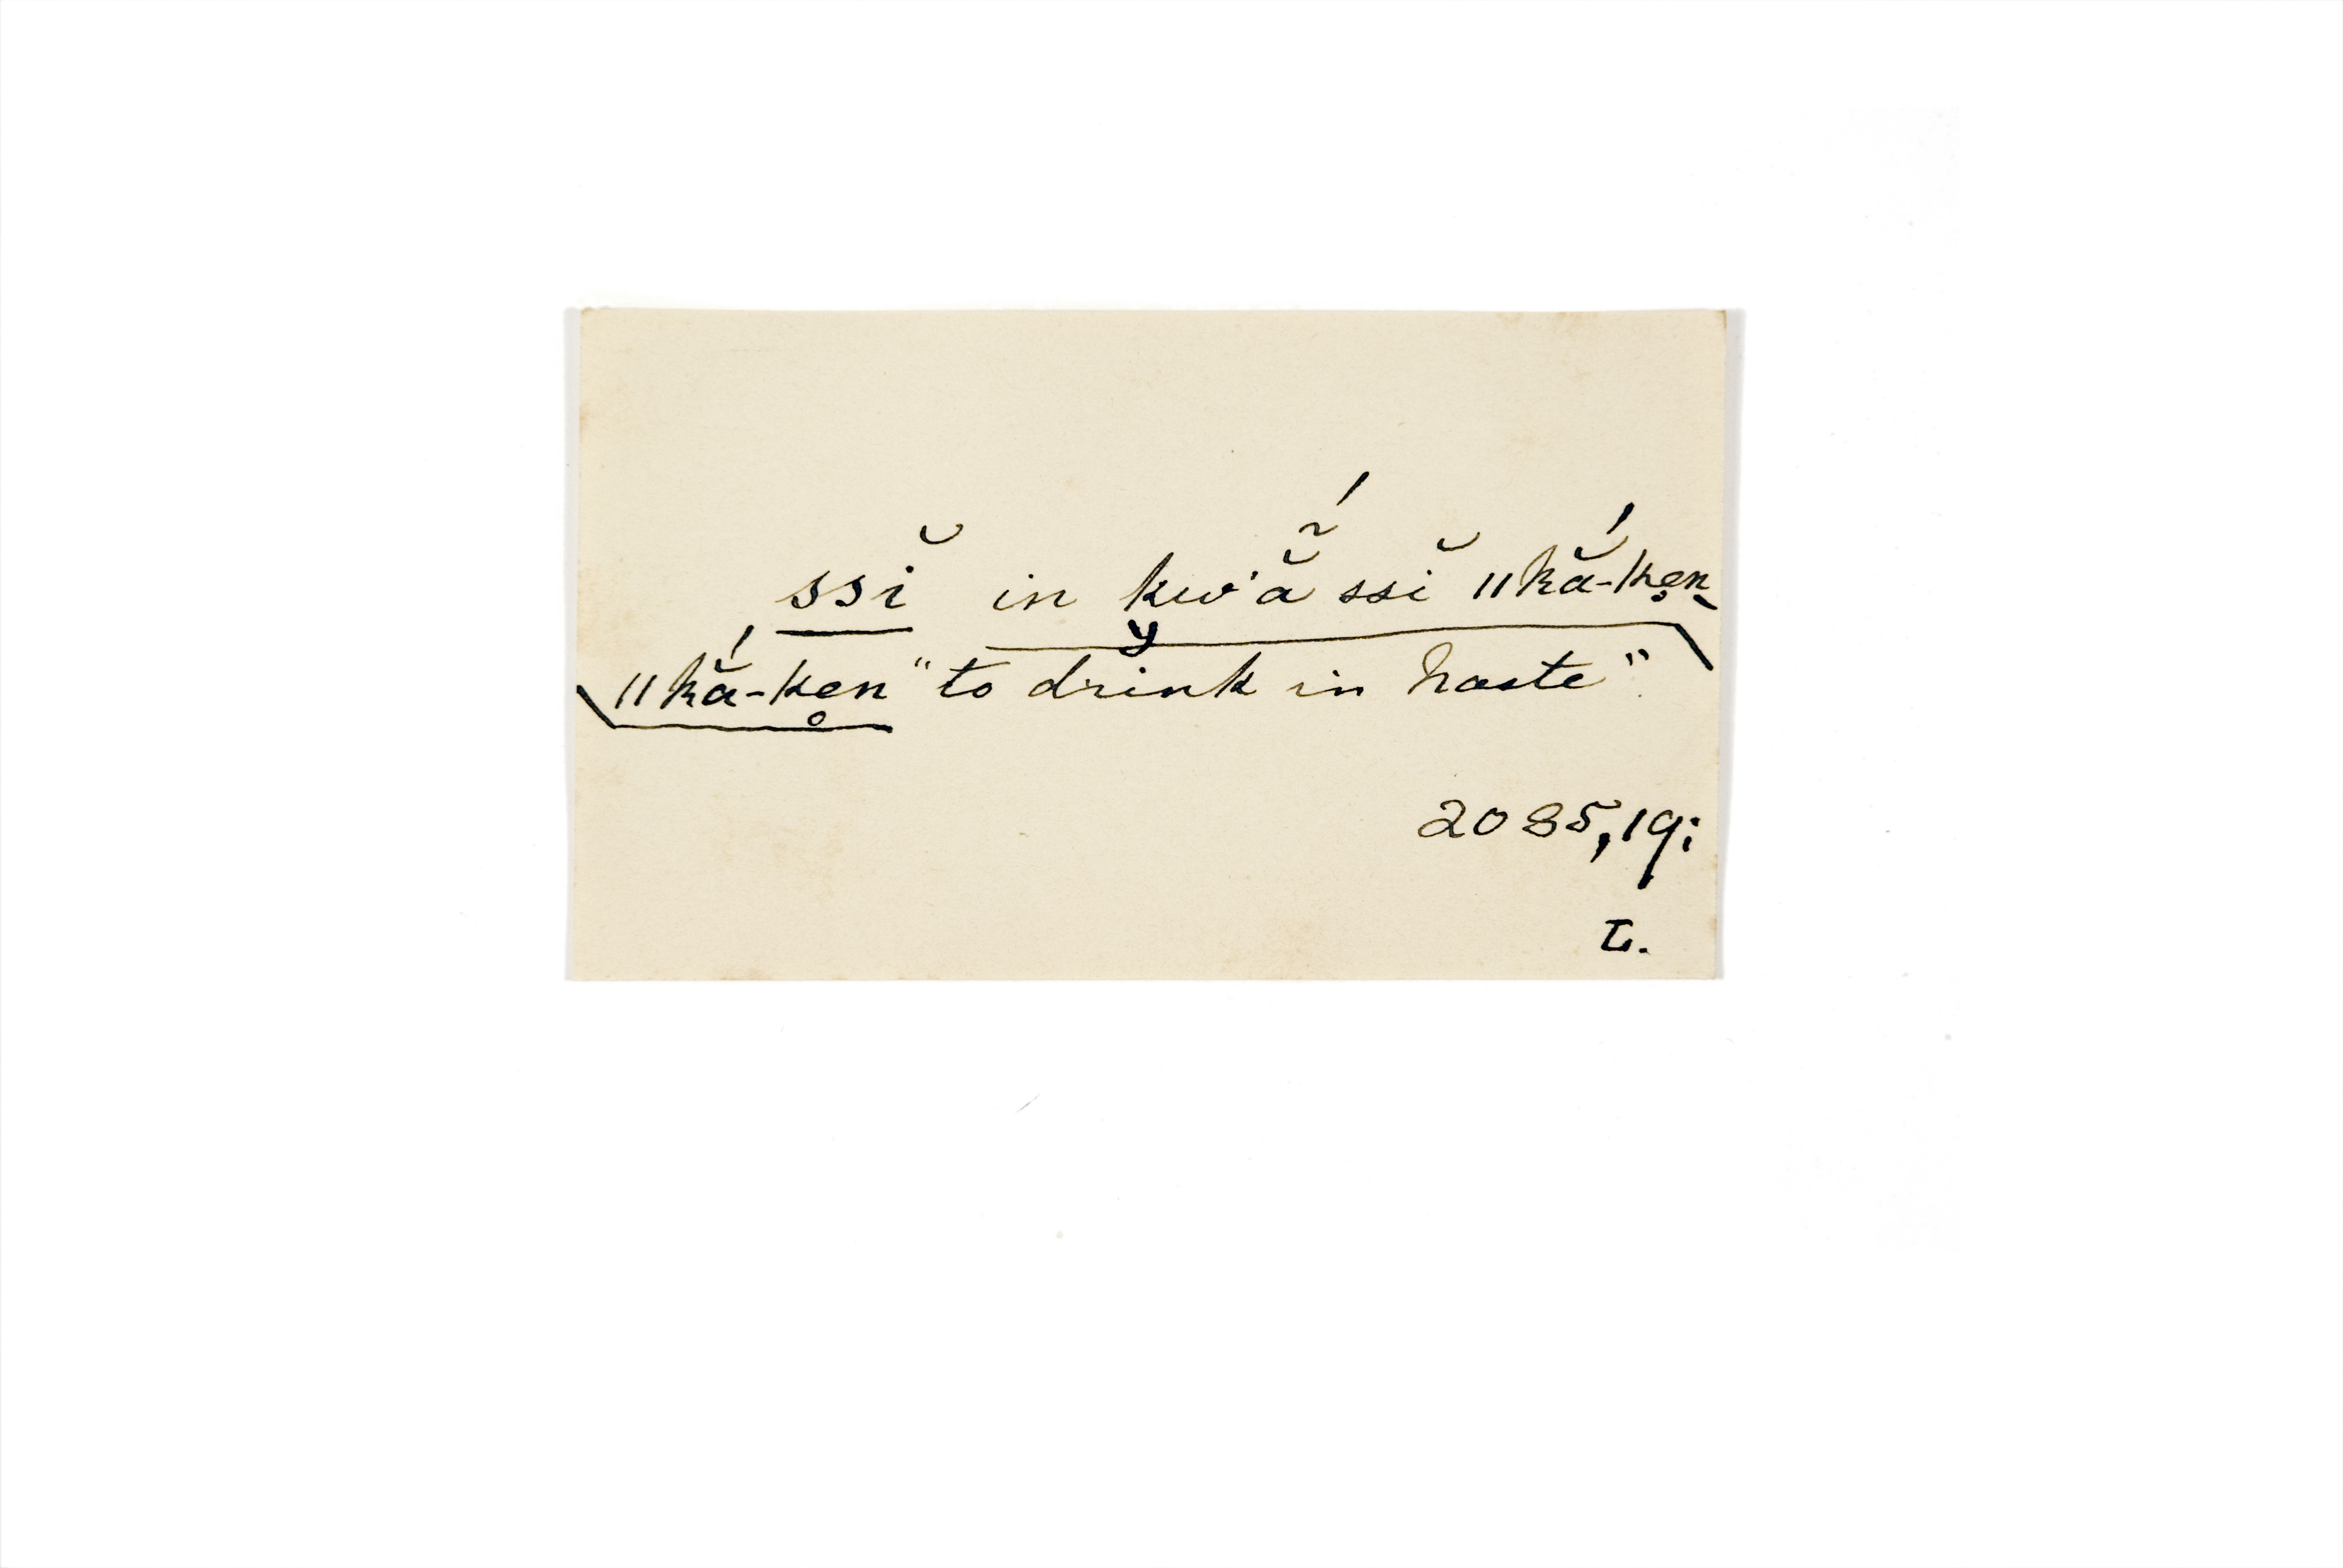 ssĭ in kw'ẵ́ ssĭ ǁkắ-ken̥-
ǁkắ-ken̥ "to drink in haste".
2085,19;
L.